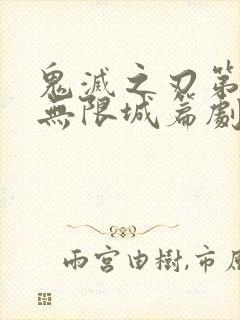 鬼滅之刃第
無限城篇劇
雨宮由樹,市原